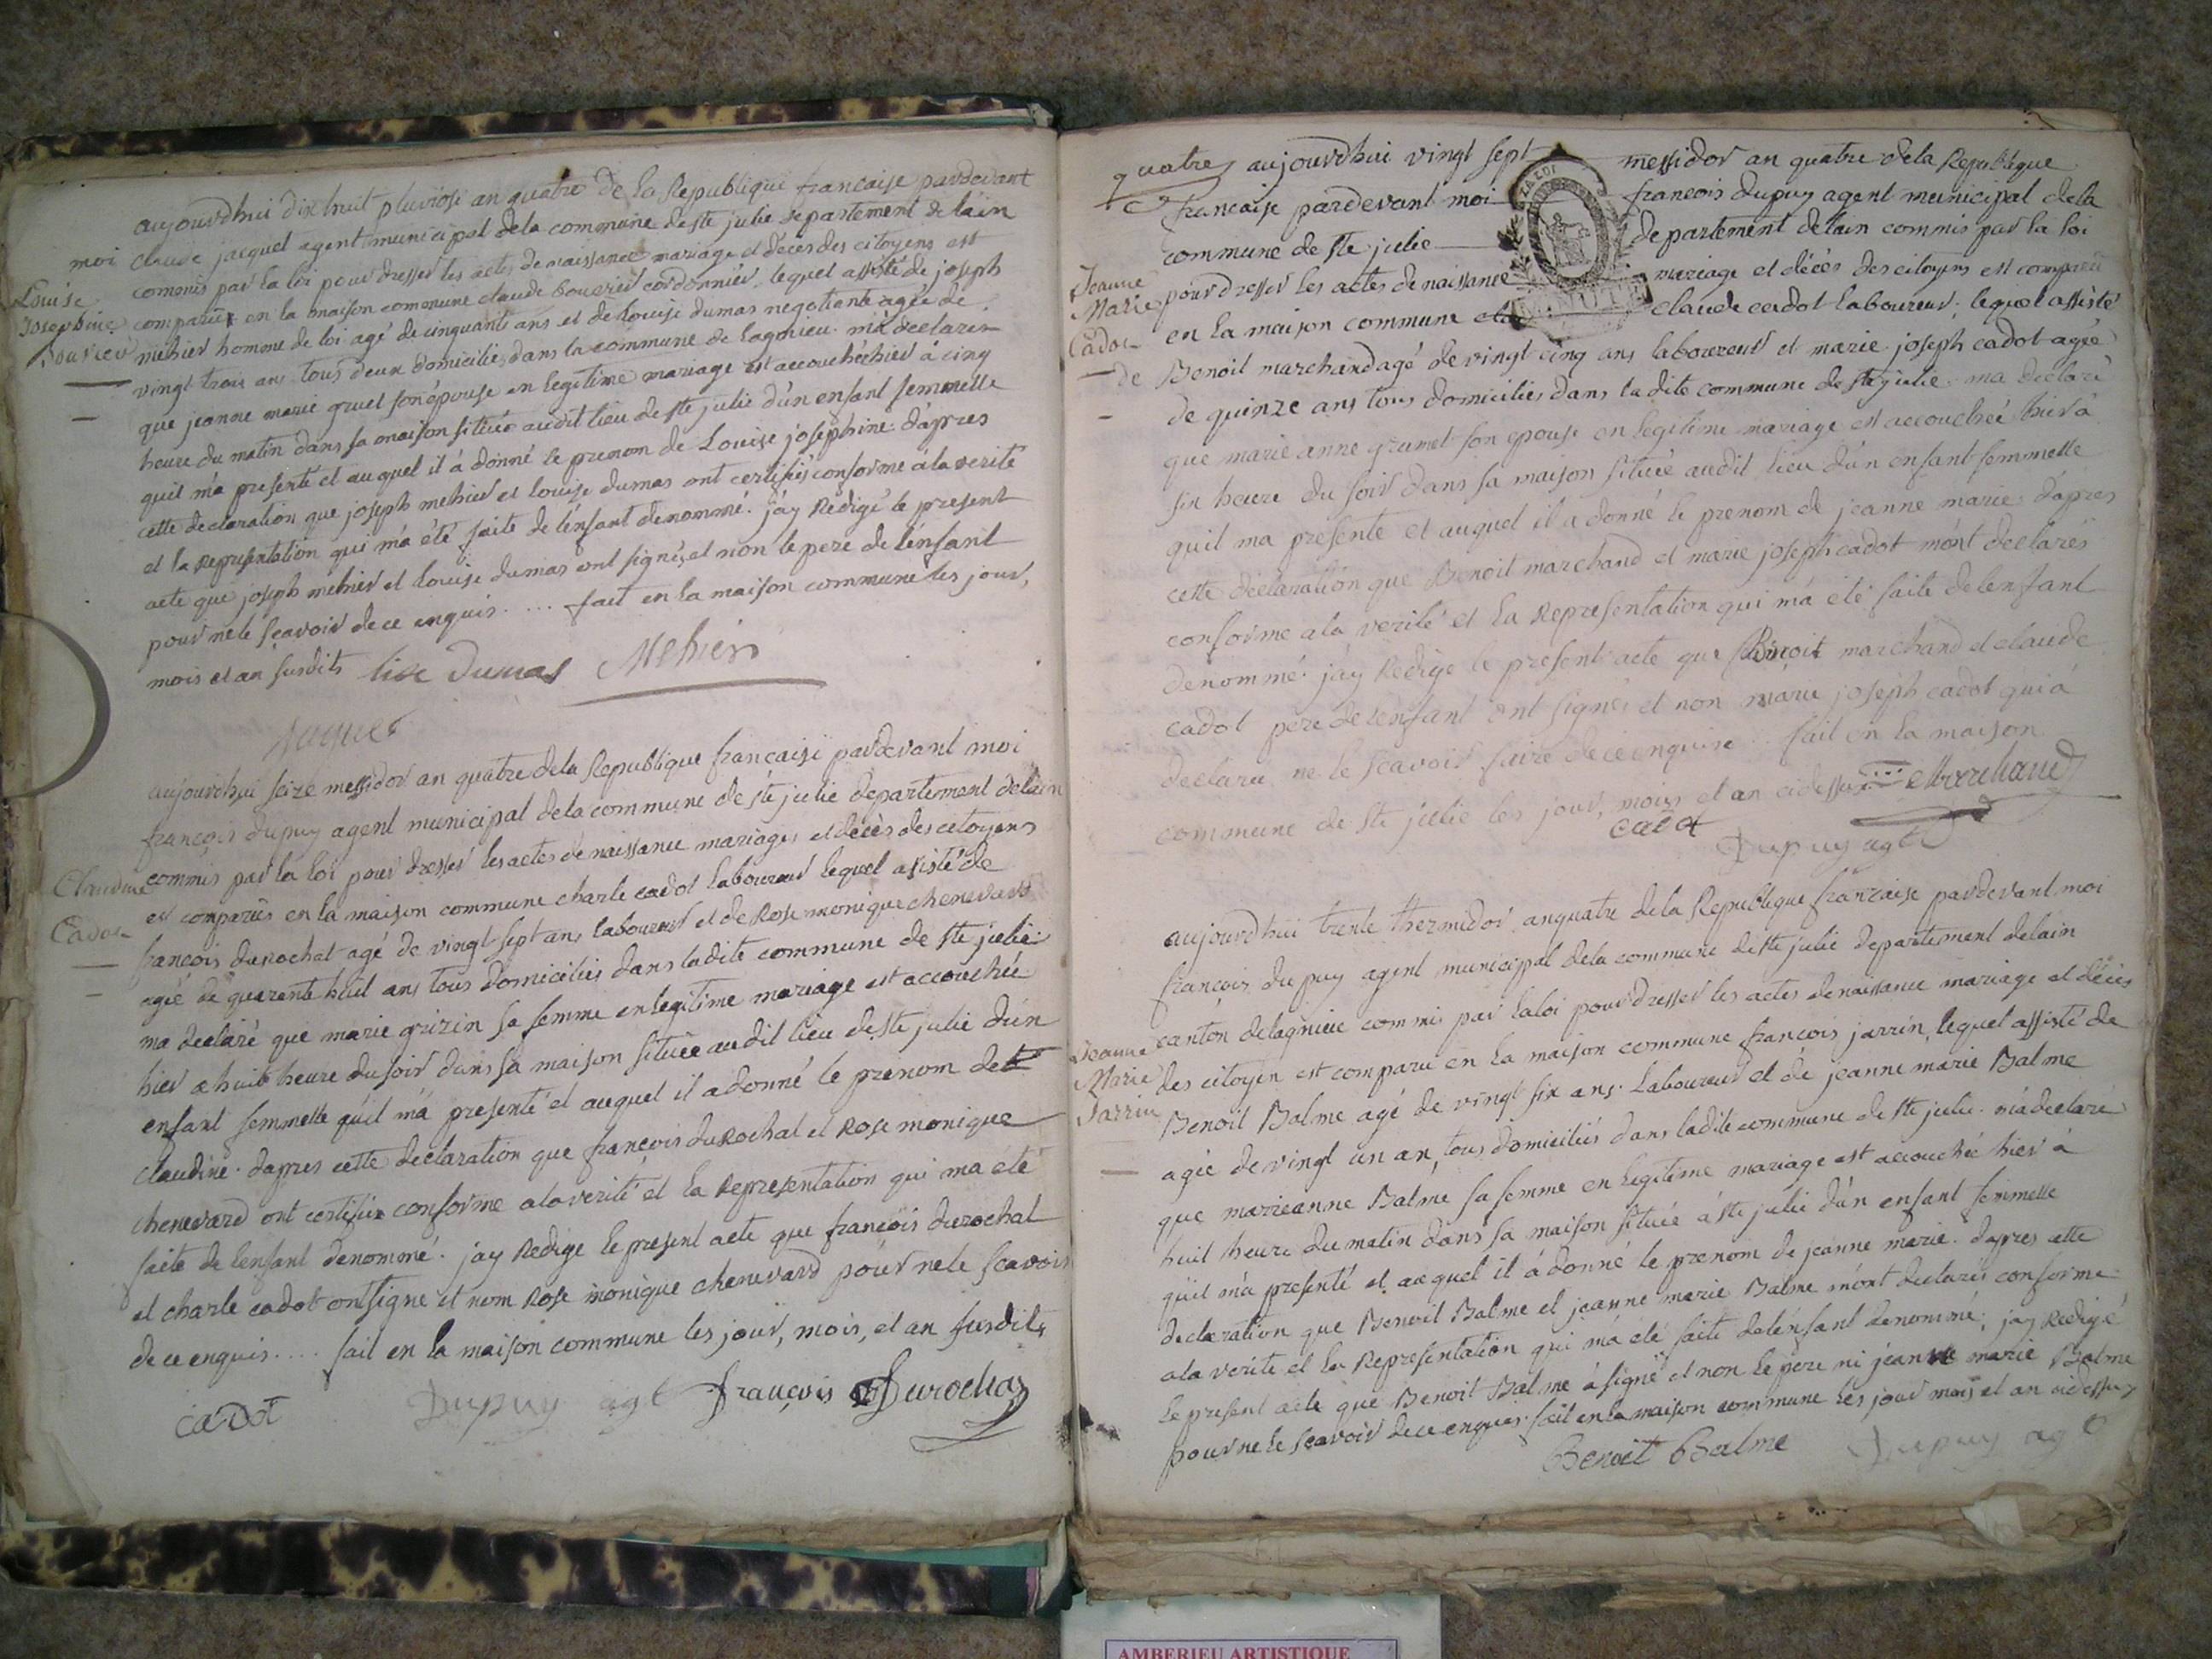 aujourdhui dix huit pluviose an quatre de la Republique francaise pardevant
moi claude jacquet agent municipal dela commune de ste julie departement de lain
commis par la loi pour dresser les actes de naissance mariage et décès des citoyens est
Louise
Josephine
comparu en la maison commune claude bouvier cordonnier, lequel assisté de joseph
mehier homme de loi agé de cinquante ans et de Louise dumas negotiante agée de
vingt trois ans tous deux domiciliés dans la commune de lagnieu. m'a declaré
que jeanne marie gruel son épouse en legitime mariage est accouchée hier à cinq
heure du matin dans sa maison située audit lieu de ste julie d'un enfant femmelle
quil m'a presenté et auquel il à donné le prenom de Louise josephine. d'apres
cette declaration que joseph mehier et louise dumas ont certifiés conforme à la verité
et la representation qui m'a été faite de l'enfant denommé. j'ay Redigé le present
acte que joseph mehier et louise dumas ont signés, et non le pere de l'enfant
pour ne le sçavoir de ce enquis .... fait en la maison commune les jour,
mois et an susdits lise Dumas Mehier
Jaquet
aujourdhui seize messidor an quatre dela Republique francaise pardevant moi
françois dupuy agent municipal dela commune de ste julie departement delain
commis par la loi pour dresser les actes de naissance mariages et décès des citoyens
Claudine
Cadot
est comparus en la maison commune charle cadot laboureur lequel assisté de
françois durochat agé de vingt sept ans laboureur et de Rose monique chenevard
agée de quarente huit ans tous domiciliés dans ladite commune de ste julie.
ma declaré que marie grizin sa femme en legitime mariage est accouchée
hier a huit heure du soir dans sa maison située audit lieu de ste julie d'un
enfant femmelle qu'il m'a presenté et auquel il a donné le prenom de
claudine. dapres cette declaration que francois duRochat et Rose monique
chenevard ont certifiée conforme a la verité et la Representation qui ma été
faite de lenfant denommé. j'ay Redige le present acte que françois durochat
et charle cadot ont signe et nom Rose monique chenevard pour ne le scavoir
de ce enquis .... fait en la maison commune les jour, mois, et an susdits
Cadot Dupuy agt françois Durochat
quatre aujourdhui vingt sept messidor an quatre dela Republique
francaise pardevant moi francois dupuy agent municipal dela
commune de ste julie departement delain commis par la loi
Jeanne
Marie
Cadot
pour dresser les actes de naissance mariage et décès des citoyens est comparu
en la maison commune claude cadot laboureur. lequel assisté
de Benoit marchand agé de vingt cinq ans laboureur et marie joseph cadot agée
de quinze ans tous domiciliés dans la dite commune de ste julie. ma declaré
que marie anne grumet son epouse en legitime mariage est accouchée hier à
six heure du soir dans sa maison située audit lieu d'un enfant femmelle
quil ma presenté et auquel il a donné le prenom de jeanne marie. d'apres
cette déclaration que Benoit marchand et marie joseph cadot m'ont declarés
conforme a la verité et la Representation qui m'a été faite de lenfant
denommé. j'ay Redige le present acte que Benoit marchand et claude
cadot pere de lenfant ont signés et non marie joseph cadot qui à
declaré ne le scavoir faire de ce enquise .. fait en la maison
commune de ste julie les jour, mois et an cidessus Marchand
cadot
Dupuy agt
aujourdhui trente thermidor an quatre dela Republique francaise pardevant moi
françois dupuy agent municipal dela commune de ste julie departement delain
canton delagnieu commis par laloi pour dresser les actes denaissance mariage et décès
Jeanne
Marie
Jarrin
des citoyen est comparu en la maison commune francois jarrin, lequel assisté de
Benoit Balme agé de vingt six ans. Laboureur et de jeanne marie Balme
agée de vingt un an, tous domiciliés dans ladite commune de ste julie. m'a declaré
que marieanne Balme sa femme en legitime mariage est accouchée hier à
huit heure du matin dans sa maison située à ste julie d'un enfant femmelle
qu'il m'a presenté et auquel il à donné le prenom de jeanne marie. dapres cette
declaration que Benoit Balme et jeanne marie Balme m'ont declarés conforme
ala verite et la Representation qui m'a été faite de lénfant denommé, jay Redigé
le present acte que Benoit Balme à signé et non le pere ni jeanne marie Balme
pour ne le scavoir de ce enquis. fait en la maison commune les jour mois et an cidessus
Benoit Balme Dupuy agt
AMBERIEU ARTISTIQUE